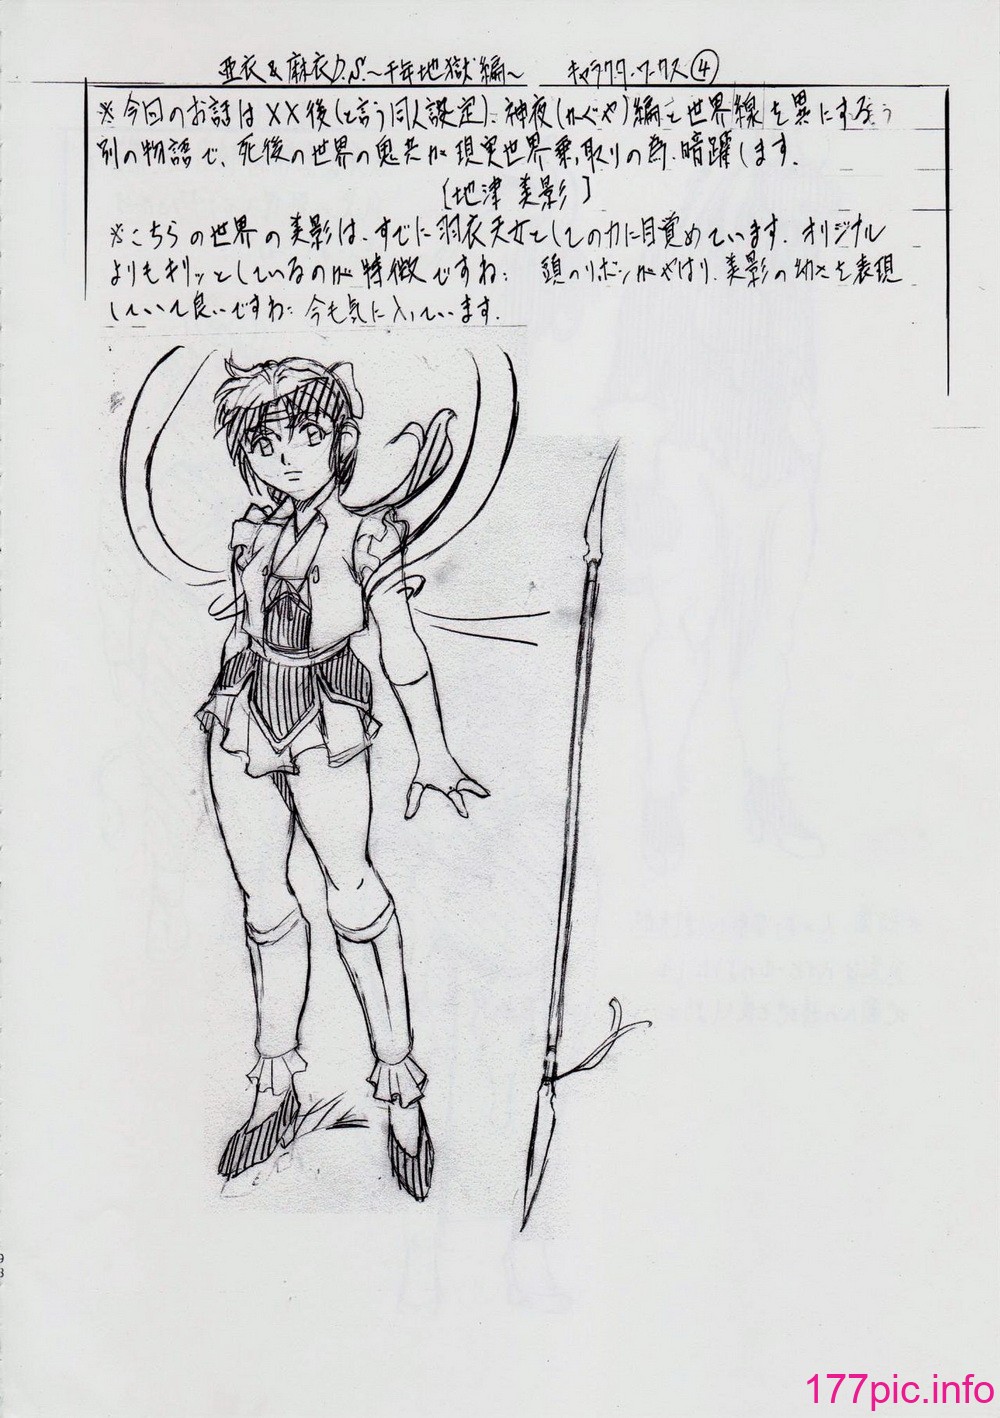 亜衣&麻衣D.S.～千年地獄編～ キャラクターワークス④
※今回のお話は××後(と言う同人設定)、神夜(かぐや)編と世界線を異にする
別の物語で、死後の世界の鬼共が現実世界乗っ取りの為、暗躍します。
[地津 美影]
※こちらの世界の美影は、すでに羽衣天女としての力に目覚めています。オリジナル
よりもキリッとしているのが特徴ですね: 頭のリボンがやはり、美影の幼さを表現
していて良いですね: 今も気に入っています。
98
177pic.info